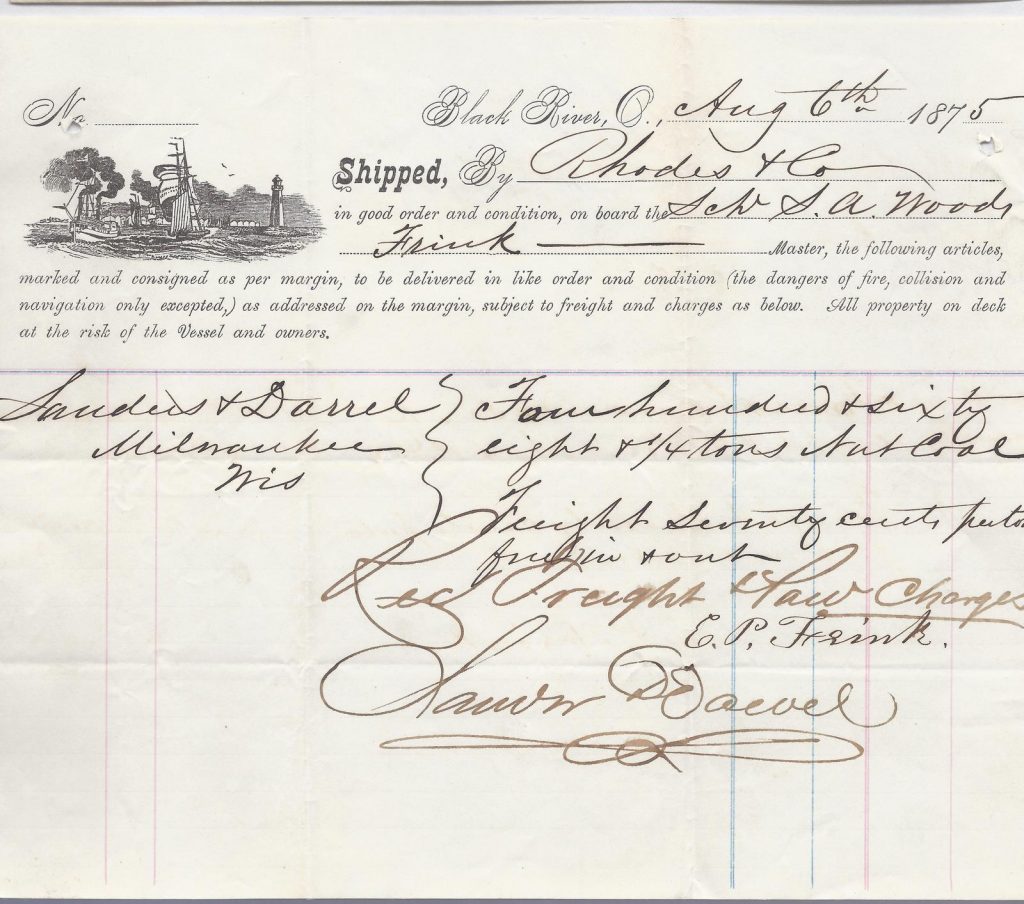 No.
Black River, O., Aug 6th 1875
Shipped, By Rhodes & Co
in good order and condition, on board the Schr S. A. Woods
Frink Master, the following articles,
marked and consigned as per margin, to be delivered in like order and condition (the dangers of fire, collision and
navigation only excepted,) as addressed on the margin, subject to freight and charges as below. All property on deck
at the risk of the Vessel and owners.
Sanders & Darrel
Milwaukee
Wis
Four hundred & sixty
eight & 1/4 tons Nut Coal
Freight Seventy cents per ton
free in & out
Rec Freight & Charges
E. P. Frink.